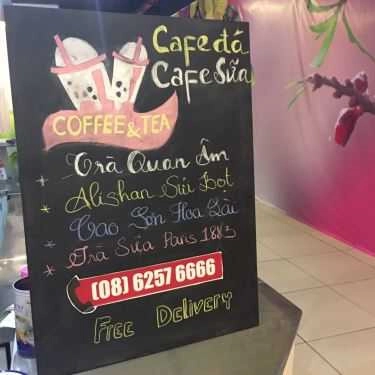 Cafe đá
Cafe Sữa
COFFEE & TEA
Trà Quan Âm
* Alishan Sủi Bọt
* Cao Sơn Hoa Lài
* Trà Sữa Paris 1883
(08) 6257 6666
Free Delivery